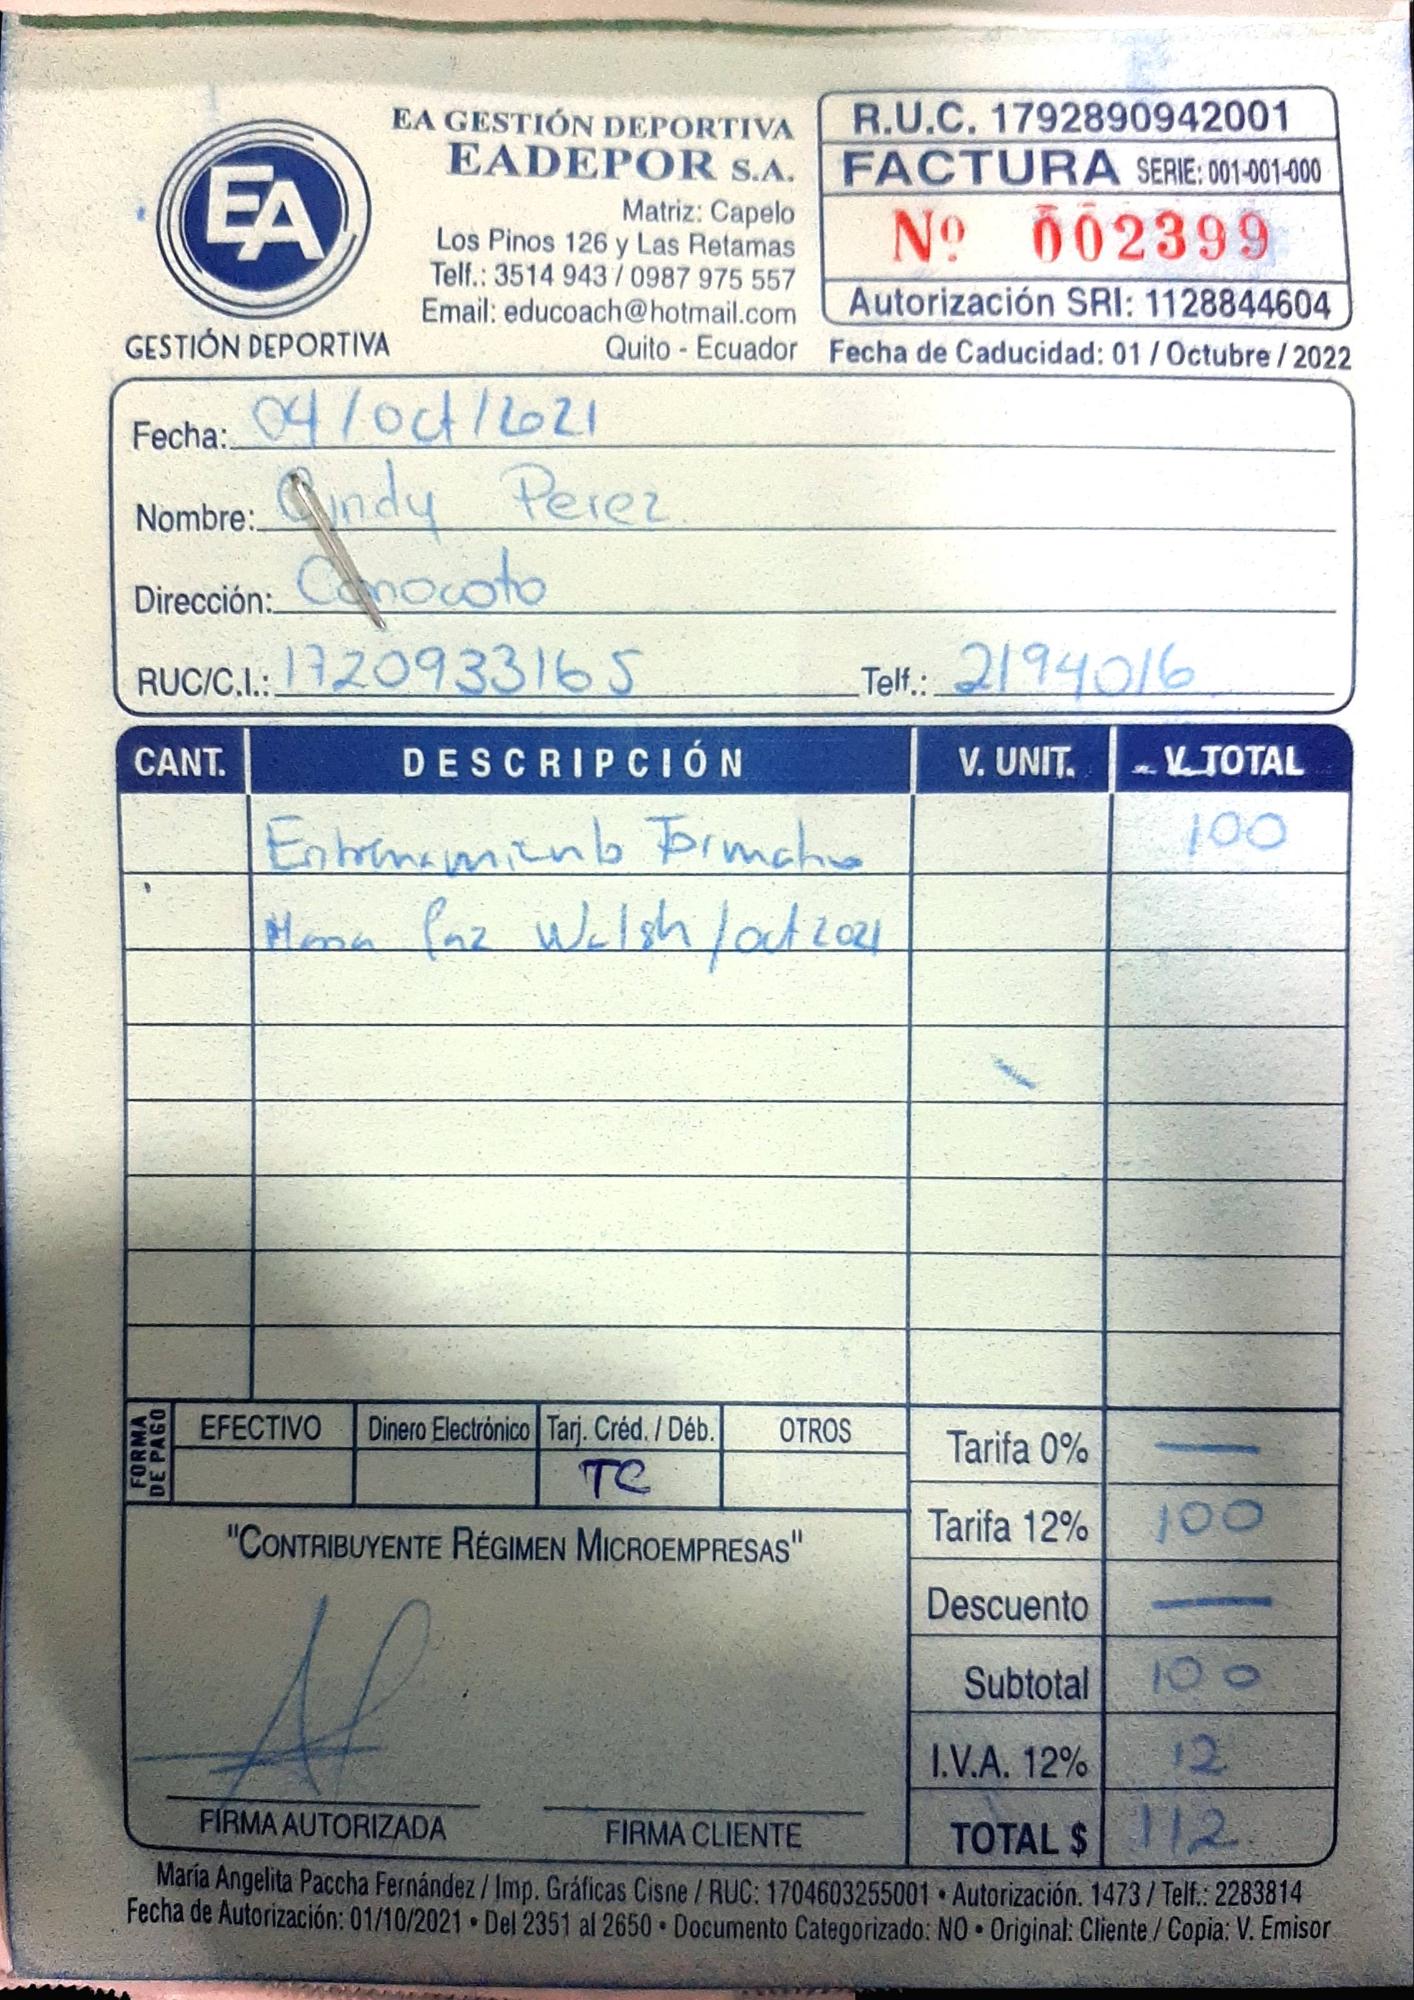 EA GESTIÓN DEPORTIVA
EADEPOR S.A.
Matriz: Capelo
Los Pinos 126 y Las Retamas
Telf.: 3514 943 / 0987 975 557
Email: educoach@hotmail.com
Quito - Ecuador
EA
GESTIÓN DEPORTIVA
R.U.C. 1792890942001
FACTURA SERIE: 001-001-000
Nº 002399
Autorización SRI: 1128844604
Fecha de Caducidad: 01 / Octubre / 2022
Fecha: 04/oct/2021
Nombre: Cindy Perez
Dirección: Conocoto
RUC/C.I.: 1720933165 Telf.: 2194016
CANT. DESCRIPCIÓN V. UNIT. V. TOTAL
Entrenamiento Formativo 100
Maria Paz Walsh /oct 2021
FORMA DE PAGO
EFECTIVO Dinero Electrónico Tarj. Créd. / Déb. OTROS
TC
Tarifa 0% —
Tarifa 12% 100
Descuento —
Subtotal 100
I.V.A. 12% 12
TOTAL $ 112
"CONTRIBUYENTE RÉGIMEN MICROEMPRESAS"
FIRMA AUTORIZADA FIRMA CLIENTE
María Angelita Paccha Fernández / Imp. Gráficas Cisne / RUC: 1704603255001 • Autorización. 1473 / Telf.: 2283814
Fecha de Autorización: 01/10/2021 • Del 2351 al 2650 • Documento Categorizado: NO • Original: Cliente / Copia: V. Emisor